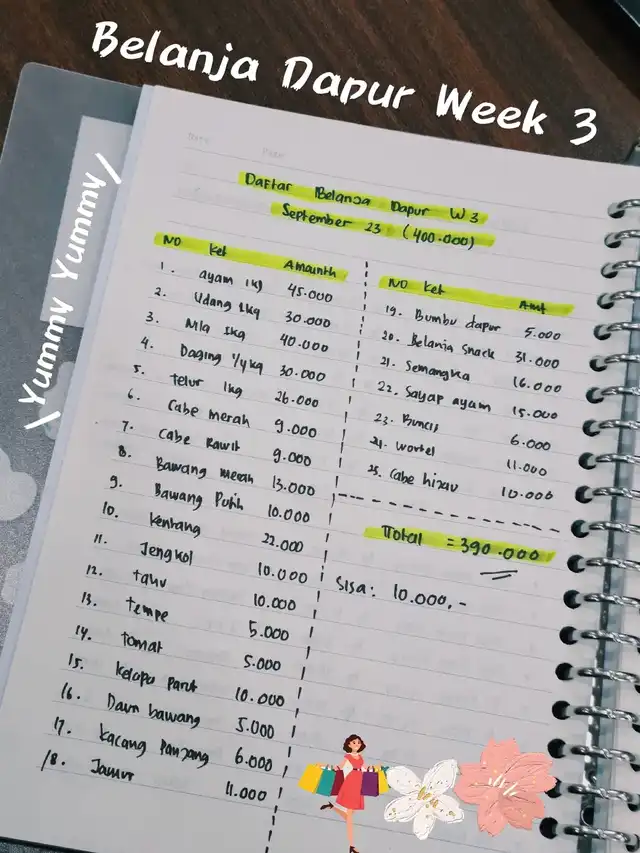 Belanja Dapur Week 3
\Yummy Yummy/
Daftar Belanja Dapur W3
September 23 (400.000)
NO Ket Amaunth
1. ayam 1kg 45.000
2. Udang 1kg 30.000
3. Nila 1kg 40.000
4. Daging 1/4kg 30.000
5. telur 1kg 26.000
6. Cabe merah 9.000
7. Cabe Rawit 9.000
8. Bawang merah 13.000
9. Bawang Putih 10.000
10. kentang 22.000
11. Jengkol 10.000
12. tahu 10.000
13. tempe 5.000
14. tomat 5.000
15. kelapa parut 10.000
16. Daun bawang 5.000
17. kacang Panjang 6.000
18. Jamur 11.000
NO Ket Amt
19. Bumbu dapur 5.000
20. Belanja snack 31.000
21. Semangka 16.000
22. Sayap ayam 15.000
23. Buncis 6.000
24. wortel 11.000
25. Cabe hijau 10.000
Total = 390.000
Sisa: 10.000,-